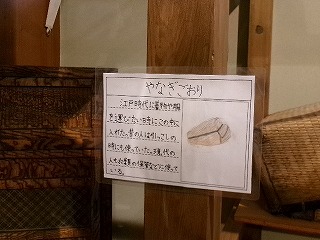 やなぎごおり
江戸時代に着物や服
を運ぶときなどにこの中に
入れた。昔の人は引っこしの
時にも使っていた。現代の
人も衣類の保管などに使って
いる。